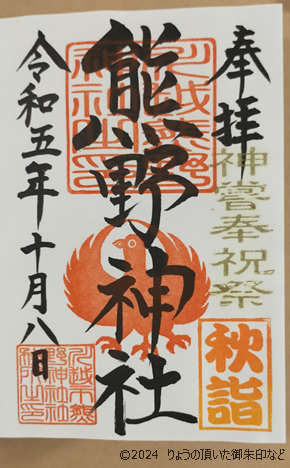 奉拝
神嘗奉祝祭
秋詣
熊野神社
令和五年十月八日
©2024 りょうの頂いた御朱印など